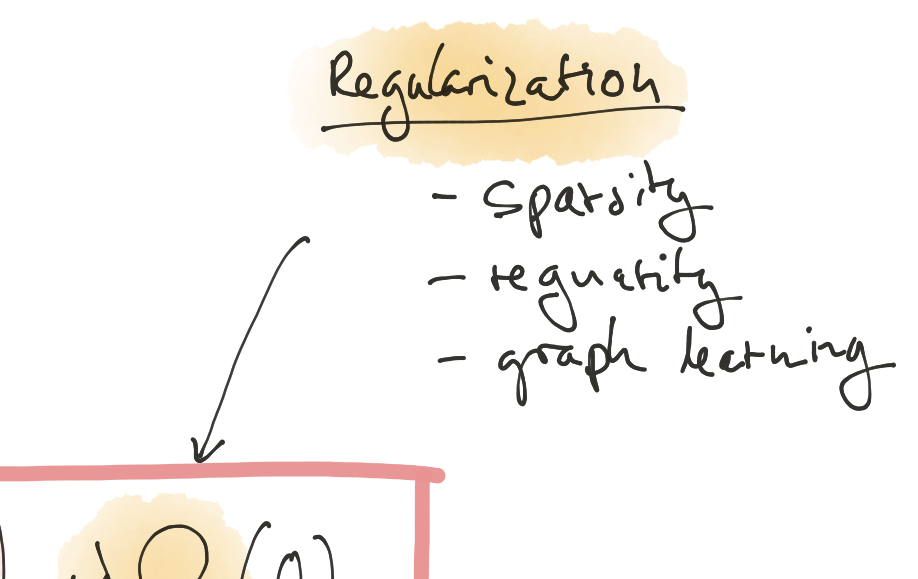 Regularization
- sparsity
- reguarity
- graph learning